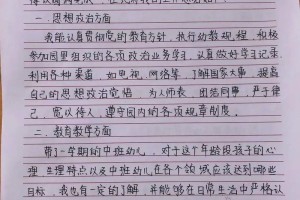 一、思想政治方面
我能认真贯彻党的教育方针，执行幼教规程，积极
参加园里组织的各项政治业务学习，认真做好学习记录，
利用各种渠道，如电视、网络等，了解国家大事，提高
自己的思想政治觉悟，为人师表，团结同事，严于律
己，宽以待人，遵守园内的各项规章制度。
二、教育教学方面
带了一学期的中班幼儿，对于这个年龄段孩子的心
理、生理特点以及中班幼儿在各个领域应该达到哪些
目标，我也有一定的了解，并能够在日常生活中严格认